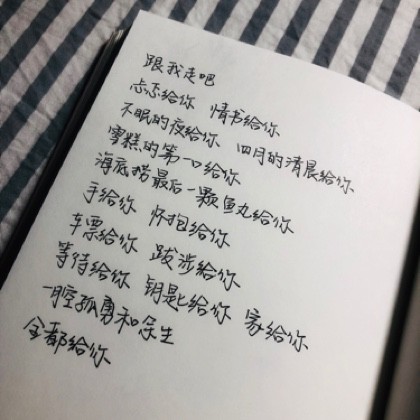 跟我走吧
忐忑给你 情书给你
不眠的夜给你 四月的清晨给你
雪糕的第一口给你
海底捞最后一颗鱼丸给你
手给你 怀抱给你
车票给你 跋涉给你
等待给你 钥匙给你 家给你
一腔孤勇和余生
全都给你